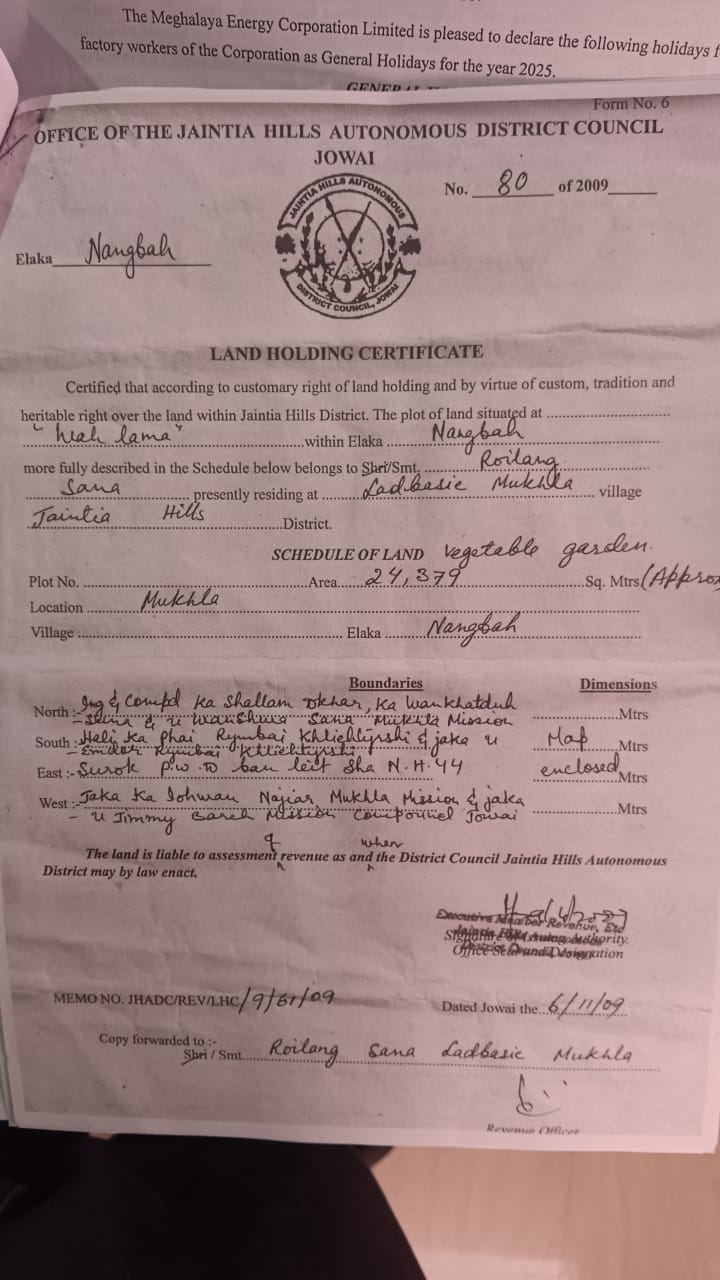 The Meghalaya Energy Corporation Limited is pleased to declare the following holidays f
factory workers of the Corporation as General Holidays for the year 2025.
Form No. 6
OFFICE OF THE JAINTIA HILLS AUTONOMOUS DISTRICT COUNCIL
JOWAI
No. 80 of 2009
JAINTIA HILLS AUTONOMOUS
DISTRICT COUNCIL, JOWAI
Elaka Nangbah
LAND HOLDING CERTIFICATE
Certified that according to customary right of land holding and by virtue of custom, tradition and
heritable right over the land within Jaintia Hills District. The plot of land situated at
"Wah lama" within Elaka Nangbah
more fully described in the Schedule below belongs to Shri/Smt. Roilang
Sana presently residing at Ladbasic Mukhla village
Jaintia Hills District.
SCHEDULE OF LAND vegetable garden.
Plot No. Area 24,379 Sq. Mtrs (Approx
Location Mukhla
Village Elaka Nangbah
Boundaries Dimensions
North :- Ing & Compd Ka Shallam Dkhar, Ka Wankhatduh
& U Wanshwa Sana Mukhla Mission Mtrs
South :- Ka Phai Rymbai Khliehtyrshi & jaka U Map Mtrs
Rymbai Khliehtyrshi
East :- Surok P.W.D ban leit sha N.H. 44 enclosed Mtrs
West :- Jaka Ka Iohwan Najiar Mukhla Mission & jaka Mtrs
- U Jimmy Gareh Mission Compound Jowai
of when
The land is liable to assessment revenue as and the District Council Jaintia Hills Autonomous
District may by law enact.
Executive Member Revenue, Etc
Signature of Issuing Authority.
Office Seal and Designation
MEMO NO. JHADC/REV/LHC/9/61/09 Dated Jowai the 6/11/09
Copy forwarded to :-
Shri / Smt. Roilang Sana Ladbasic Mukhla
Revenue Officer